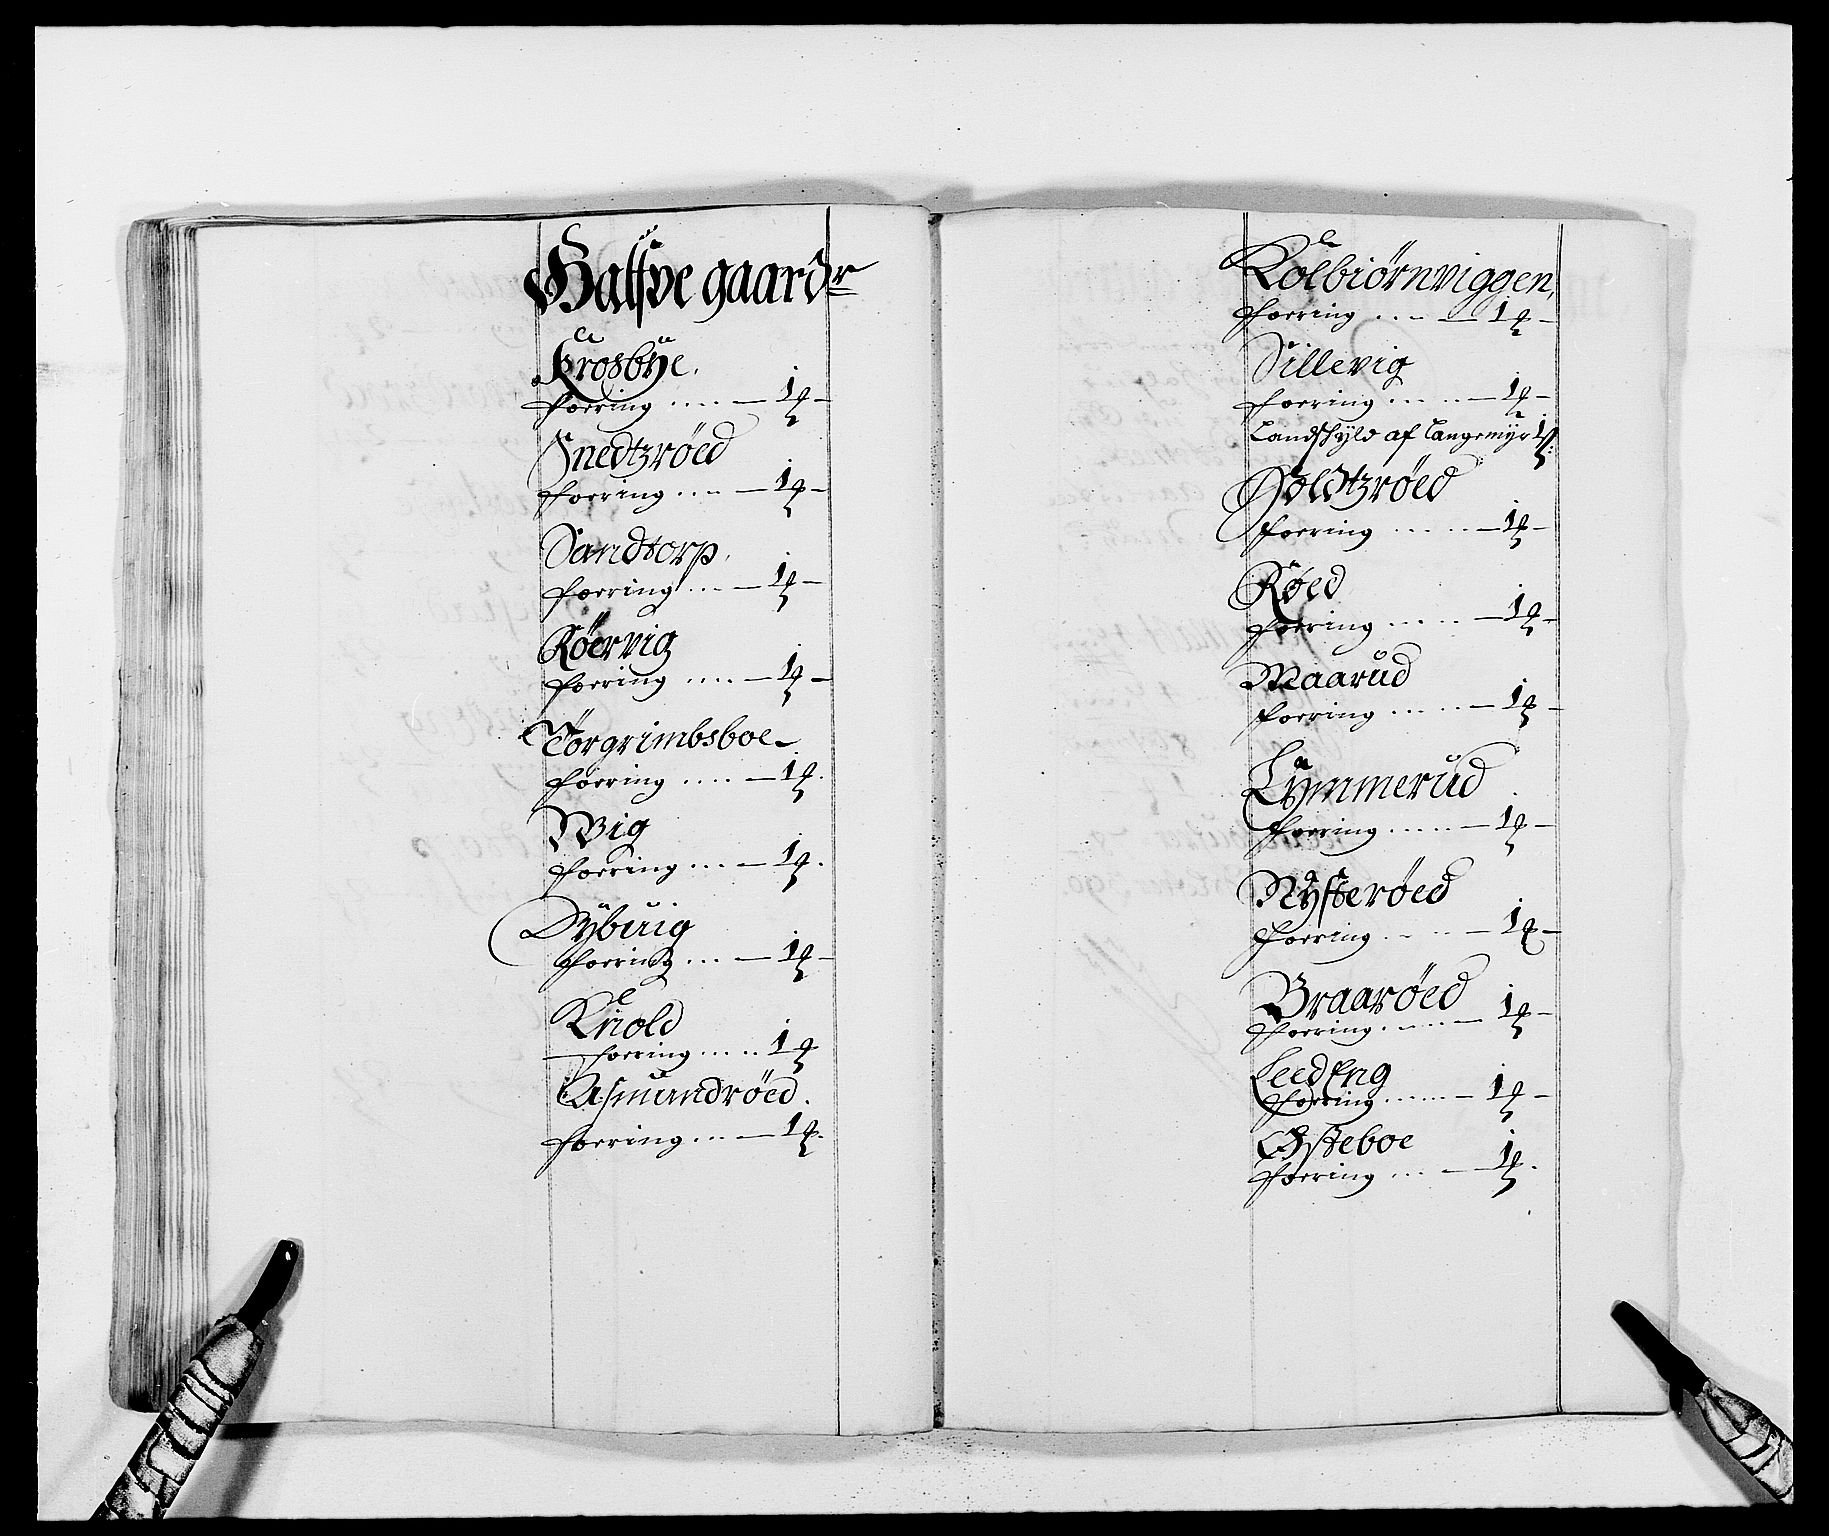 Halfve gaardr
Krosbye.
foering .... — 1 —
Snedtzrøed
foering ... — 1 —
Sandtorp.
foering ... — 1 —
Røervig
foering .... — 1 —
Torgrimbsboe
foering .... — 1 .
Wig
foering ... — 1 .
Dybuig
foering ... — 1 —
Knold
foering ..... 1
Asmundrøed.
foering ... — 1 .
Kolbiørnviggen,
foering ... — 1 —
Sillevig
foering ..... — 1 —
Landskyld af Langemyr 1
Holdtzrøed
foering ..... — 1 —
Røed
foering ..... — 1 —
Maarud
foering ..... — 1 —
Lymmerud
foering ..... — 1 —
Nysterøed
foering .... — 1 —
Braarøed
foering ..... — 1 —
LeedEng
foering ...... — 1 —
Østeboe
foering ... — 1 .